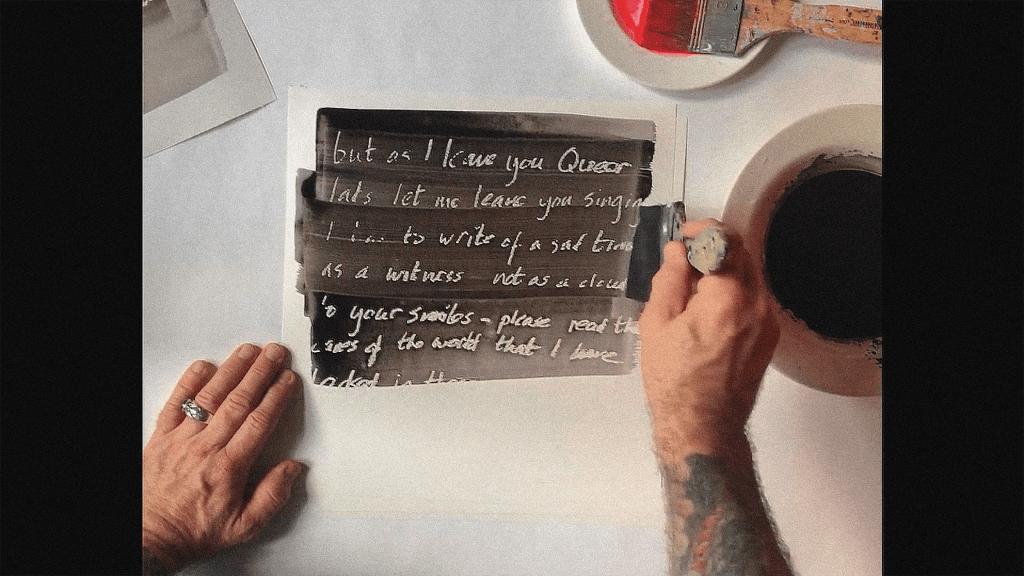 but as I leave you Queer
lads let me leave you singing
I to write of a sad time
as a witness not as a cloud
to your smiles - please read the
cares of the world that I have
locked in